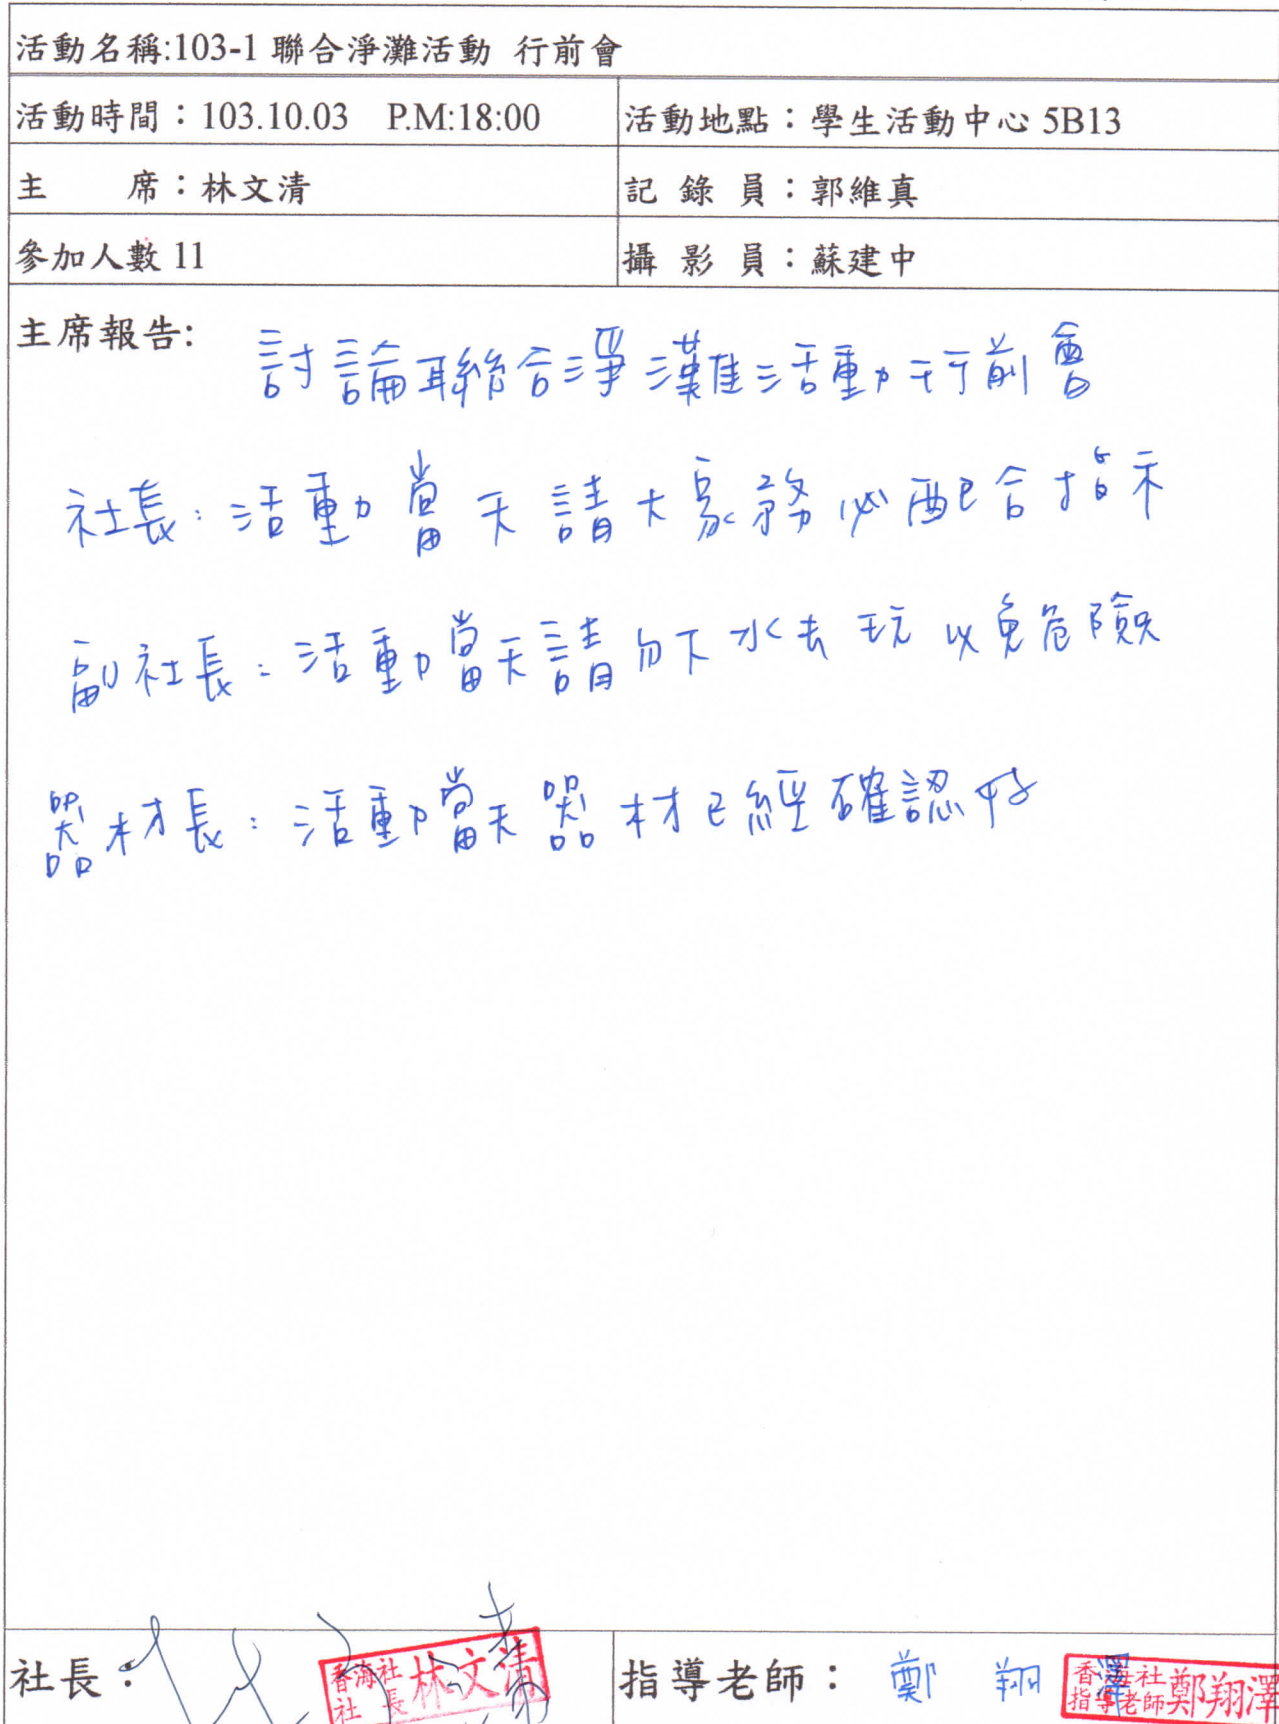 活動名稱:103-1 聯合淨灘活動 行前會
活動時間：103.10.03 P.M:18:00 活動地點：學生活動中心 5B13
主 席：林文清 記 錄 員：郭維真
參加人數 11 攝 影 員：蘇建中
主席報告: 討論聯合淨灘活動行前會
社長：活動當天請大家務必配合指示
副社長：活動當天請勿下水去玩以免危險
器材長：活動當天器材已經確認好
社長： 林文清 香海社 社長 林文清 指導老師： 鄭翔澤 香海社 指導老師 鄭翔澤